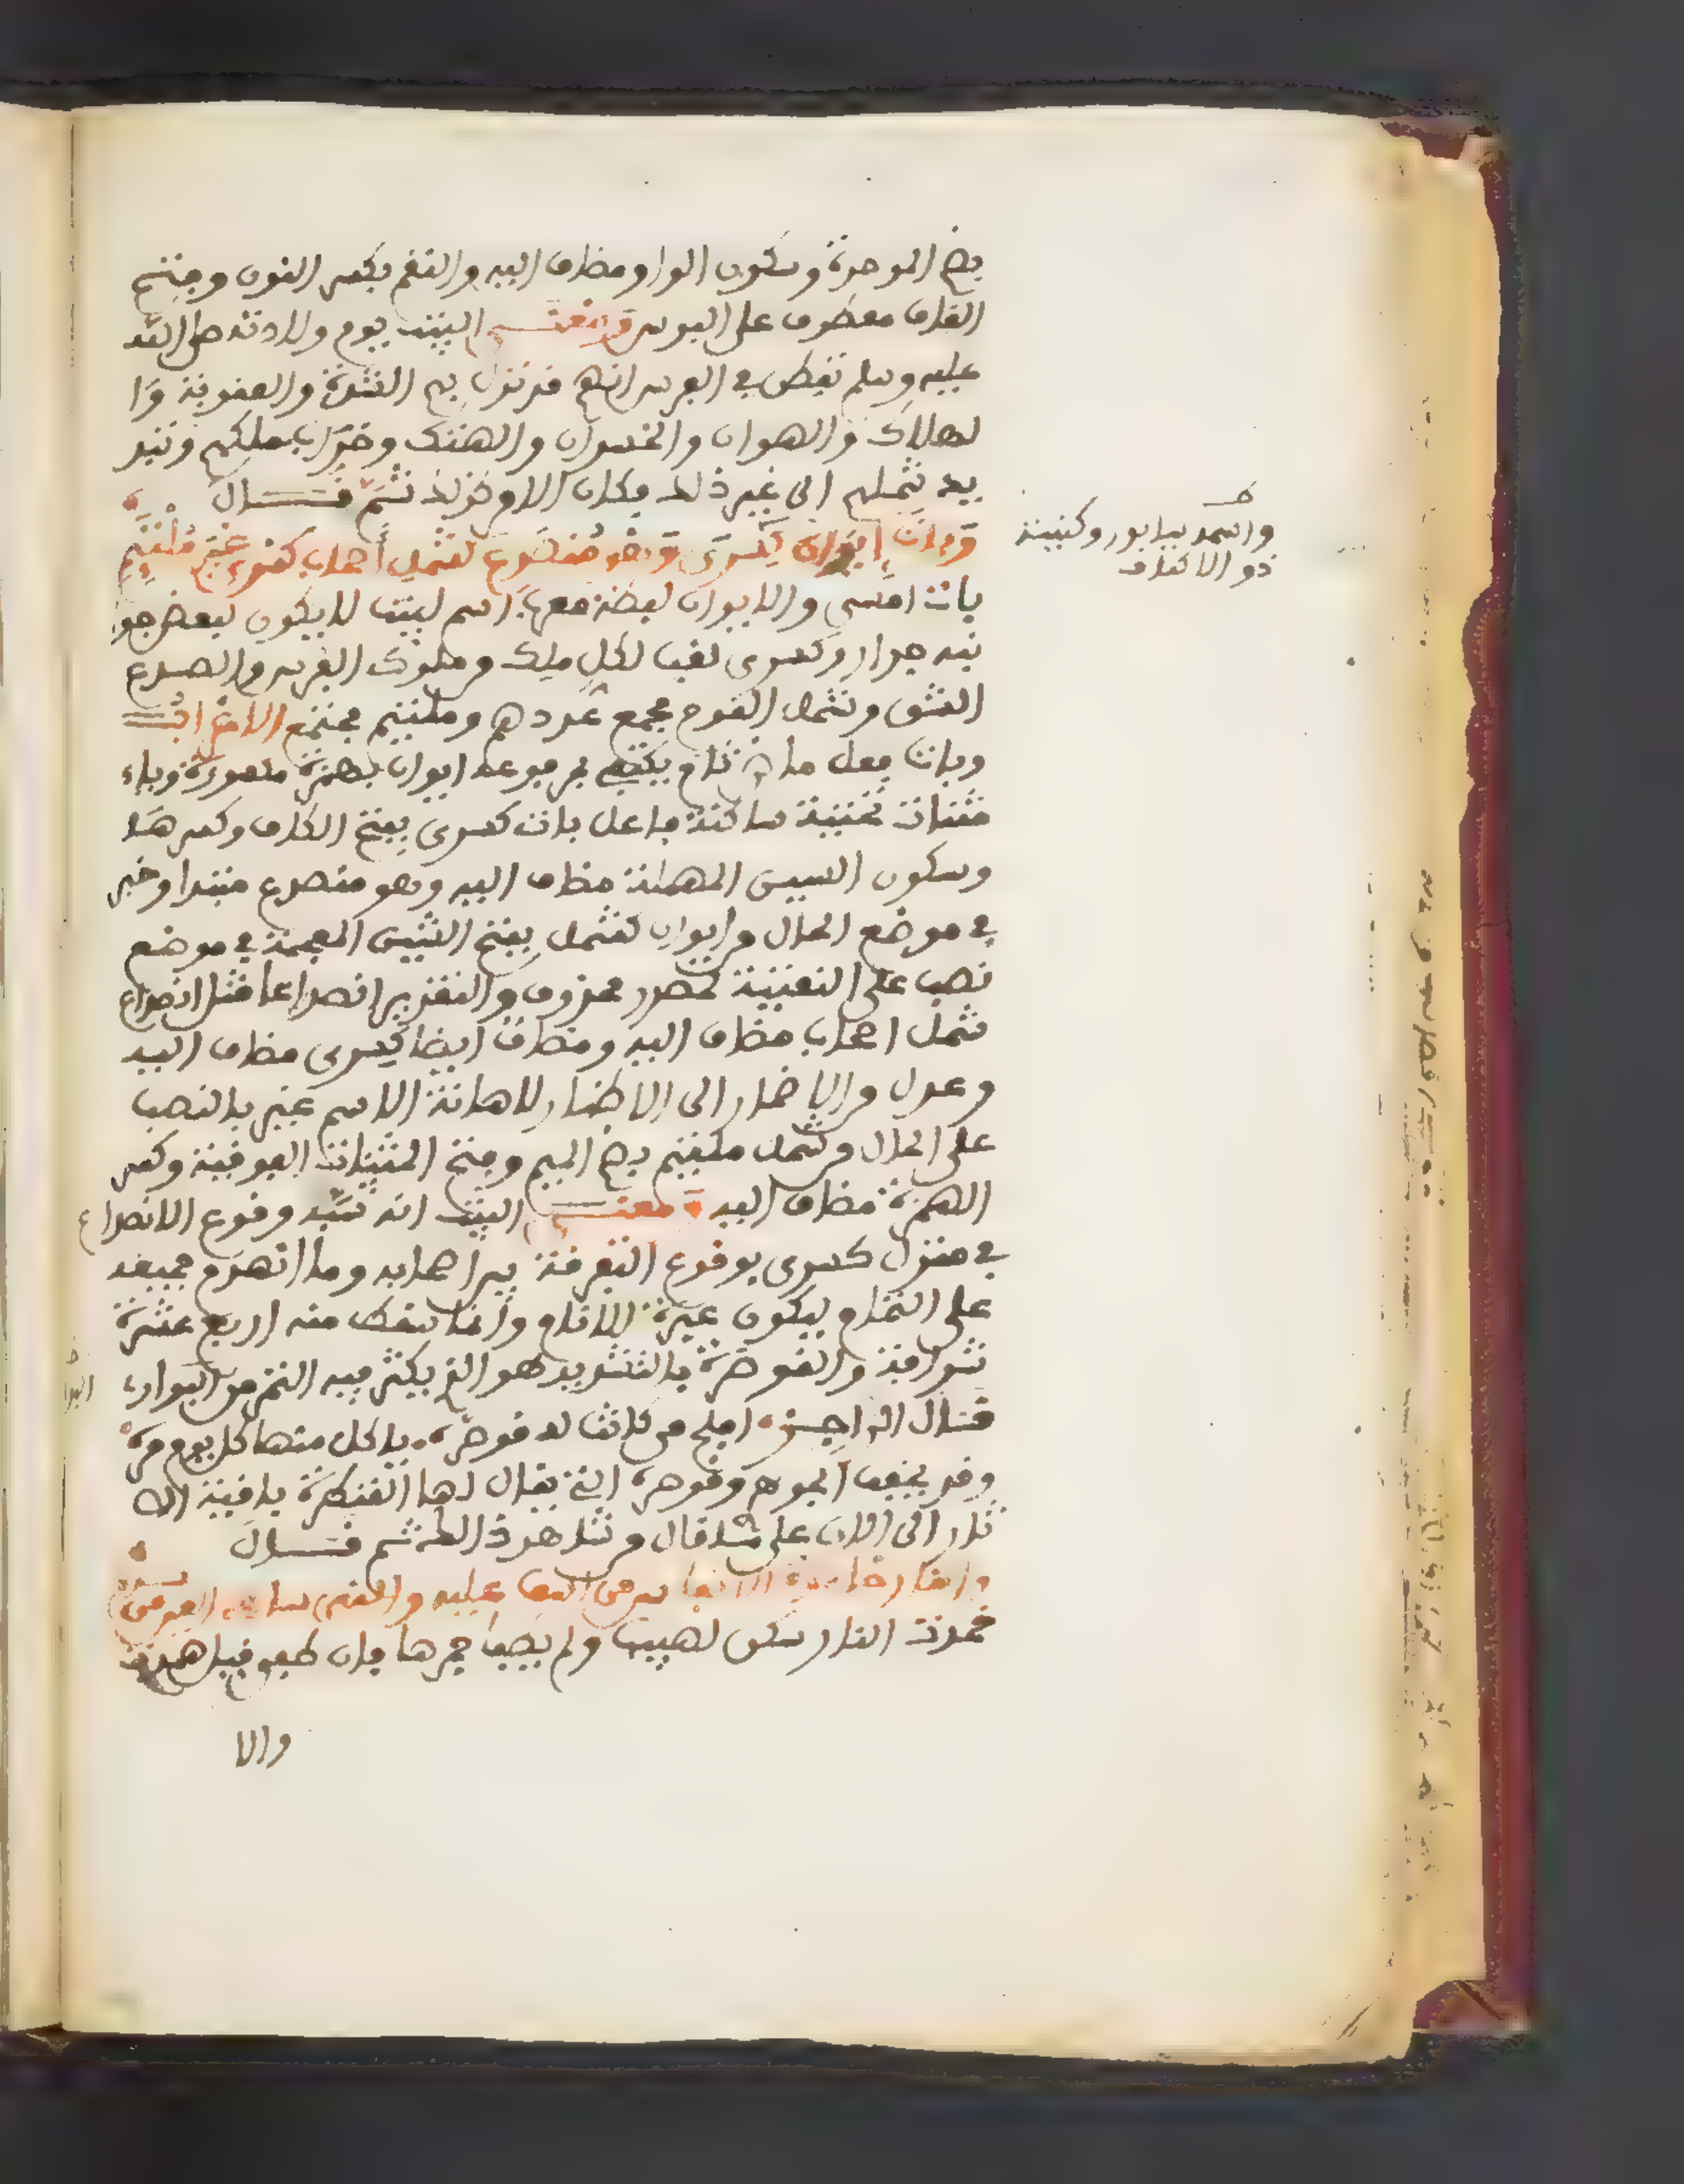 بضم الموحدة وسكون الواو مضاف اليه والنقم بكسر النون وفتح
القاف معطوف على البوس ومعنى البيت يوم ولادته صلى الله
عليه وسلم تفطن في الفرس انهم قد نزل بهم الشدة والعقوبة وا
لهلاك والهوان والخسران والهتك وخراب ملكهم وتبد
يد شملهم الى غير ذلك فكان الامر كذلك ثم قال
وبات ايوان كسرى وهو منصدع كشمل اصحاب كسرى غير ملتئم
بات امسى والايوان لفظة معربة اسم لبيت لا يكون لبعض جوا
نبه جدار وكسرى لقب لكل ملك من ملوك الفرس والصدع
الشق وشمل القوم مجمع عددهم وملتئم مجتمع الاعراب
وبات فعل ماض تام يكتفي بمرفوعه ايوان بهمزة مكسورة وياء
مثنات تحتية ساكنة فاعل بات كسرى بفتح الكاف وكسرها
وسكون السين المهملة مضاف اليه وهو منصدع مبتدا وخبر
في موضع الحال من ايوان كشمل بفتح الشين المعجمة في موضع
نصب على النعتية لمصدر محذوف والتقدير انصداعا مثل انصداع
شمل اصحاب مضاف اليه ومضاف ايضا كسرى مضاف اليه
وعدل من الاضمار الى الاظهار لاهانة الاسم غير بالنصب
على الحال من شمل ملتئم بضم الميم وفتح المثنات الفوقية وكسر
الهمزة مضاف اليه ومعنى البيت انه شبه وقوع الانصداع
في منزل كسرى بوقوع التفرقة بين اصحابه وما انهدم جميعه
على التمام ليكون عبرة للانام وانما سقط منه اربع عشرة
شرافة والقوصرة بالتشديد هو الذي يكنز فيه التمر من البوار
قال الراجز افلح من كانت له قوصره ياكل منها كل يوم مره
وقد يخفف
ثار الى الان على ما قال من شاهد ذالك ثم قال
والنار خامدة الانفاس من اسف عليه والنهر ساهي العين من سدم
خمدت النار سكن لهيبها ولم يطف جمرها فان طفي قيل همدت
والا
واسمه سابور وكنيته
ذو الاكتاف